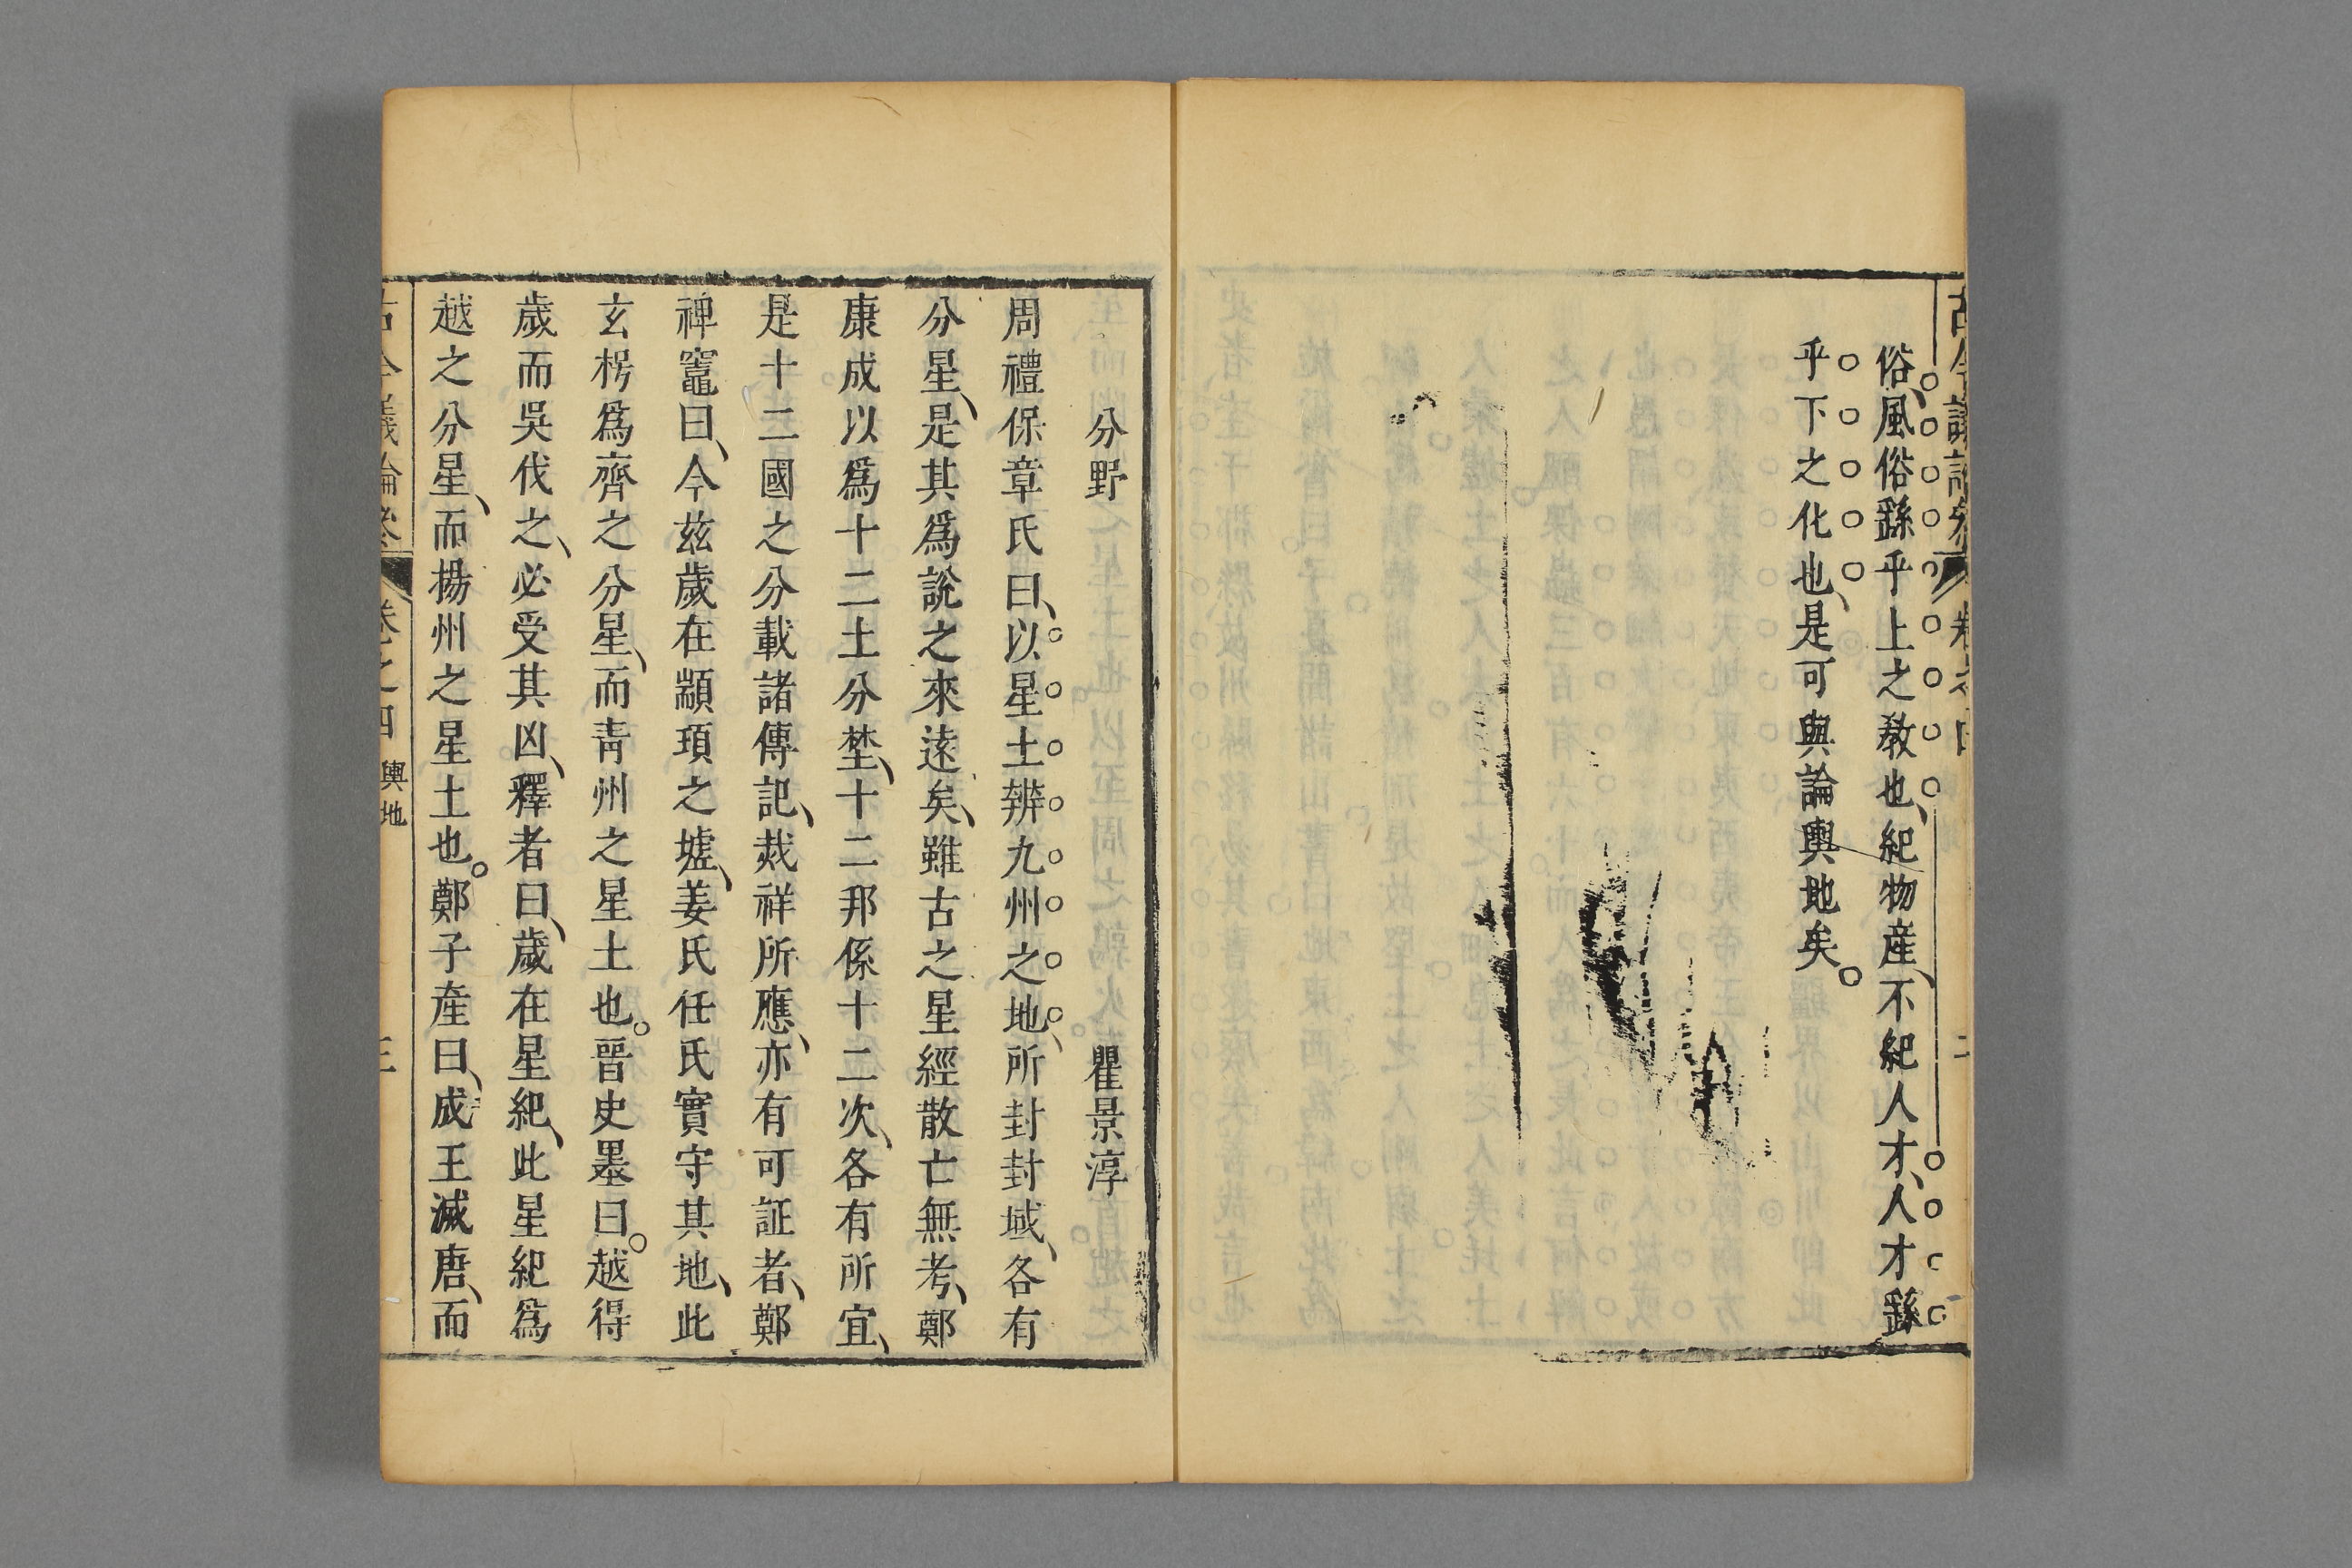 俗、風俗繇乎上之敎也、紀物産、不紀人才、人才繇
乎下之化也、是可與論輿地矣。
分野 瞿景淳
周禮保章氏曰、以星土辨九州之地、所封封域、各有
分星、是其爲説之來遠矣、雖古之星經散亡無考、鄭
康成以爲十二土分埜、十二邦係十二次、各有所宜、
是十二國之分載諸傳記、烖祥所應、亦有可証者、鄭
禆竈曰、今茲歲在顓頊之墟、姜氏任氏實守其地、此
玄枵爲齊之分星、而靑州之星土也。晉史墨曰。越得
歲而吳伐之、必受其凶、釋者曰、歲在星紀、此星紀爲
越之分星、而揚州之星土也。鄭子産曰、成王滅唐、而
古今議論參 卷之四 輿地 三